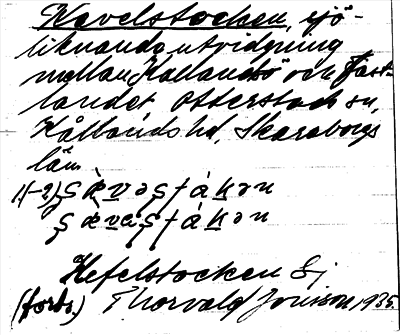 Kevelstocken, sjö-
liknande utvidgning
mellan Kållandsö och fast-
landet Otterstads sn,
Kållands hd, Skaraborgs
län.
1(-2)
Hefelstocken Ej
(forts.) Thorvald Jonsson 1935